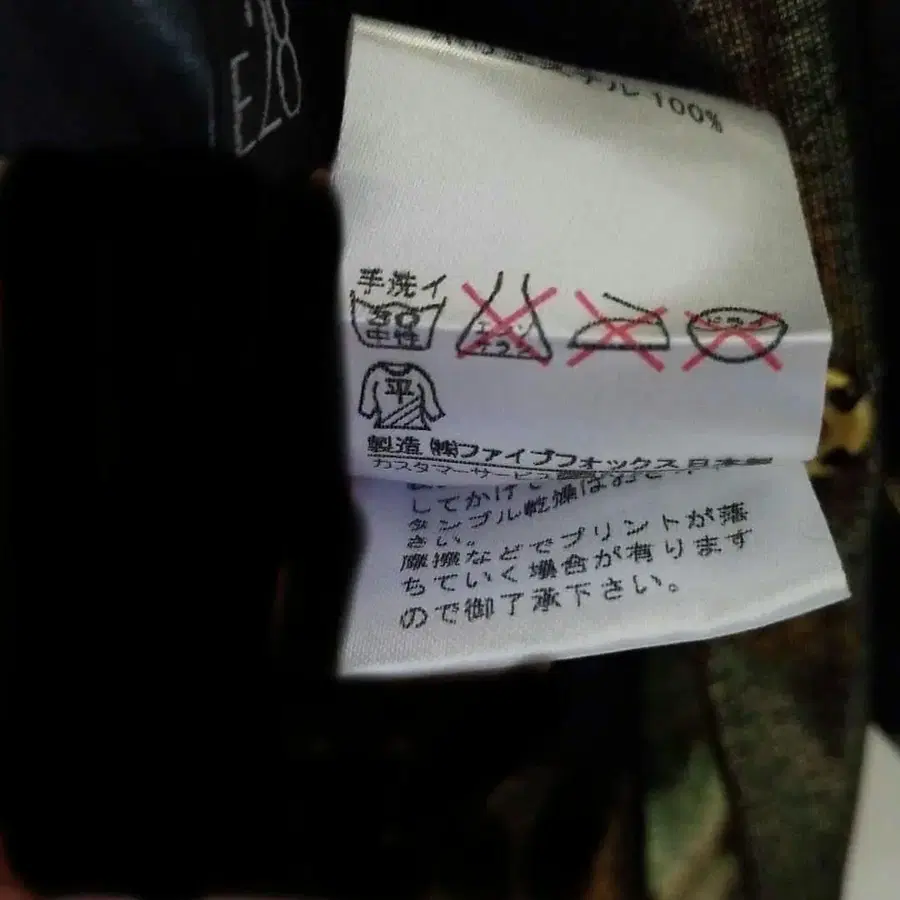 E28
ポリエステル 100%
手洗イ
30 中性
エンソ サラシ
ドライ
平
製造 ㈱ファイブフォックス 日本製
カスタマーサービス
してかけて
タンブル乾燥はお
さい。
摩擦などでプリントが落
ちていく場合が有ります
ので御了承下さい。